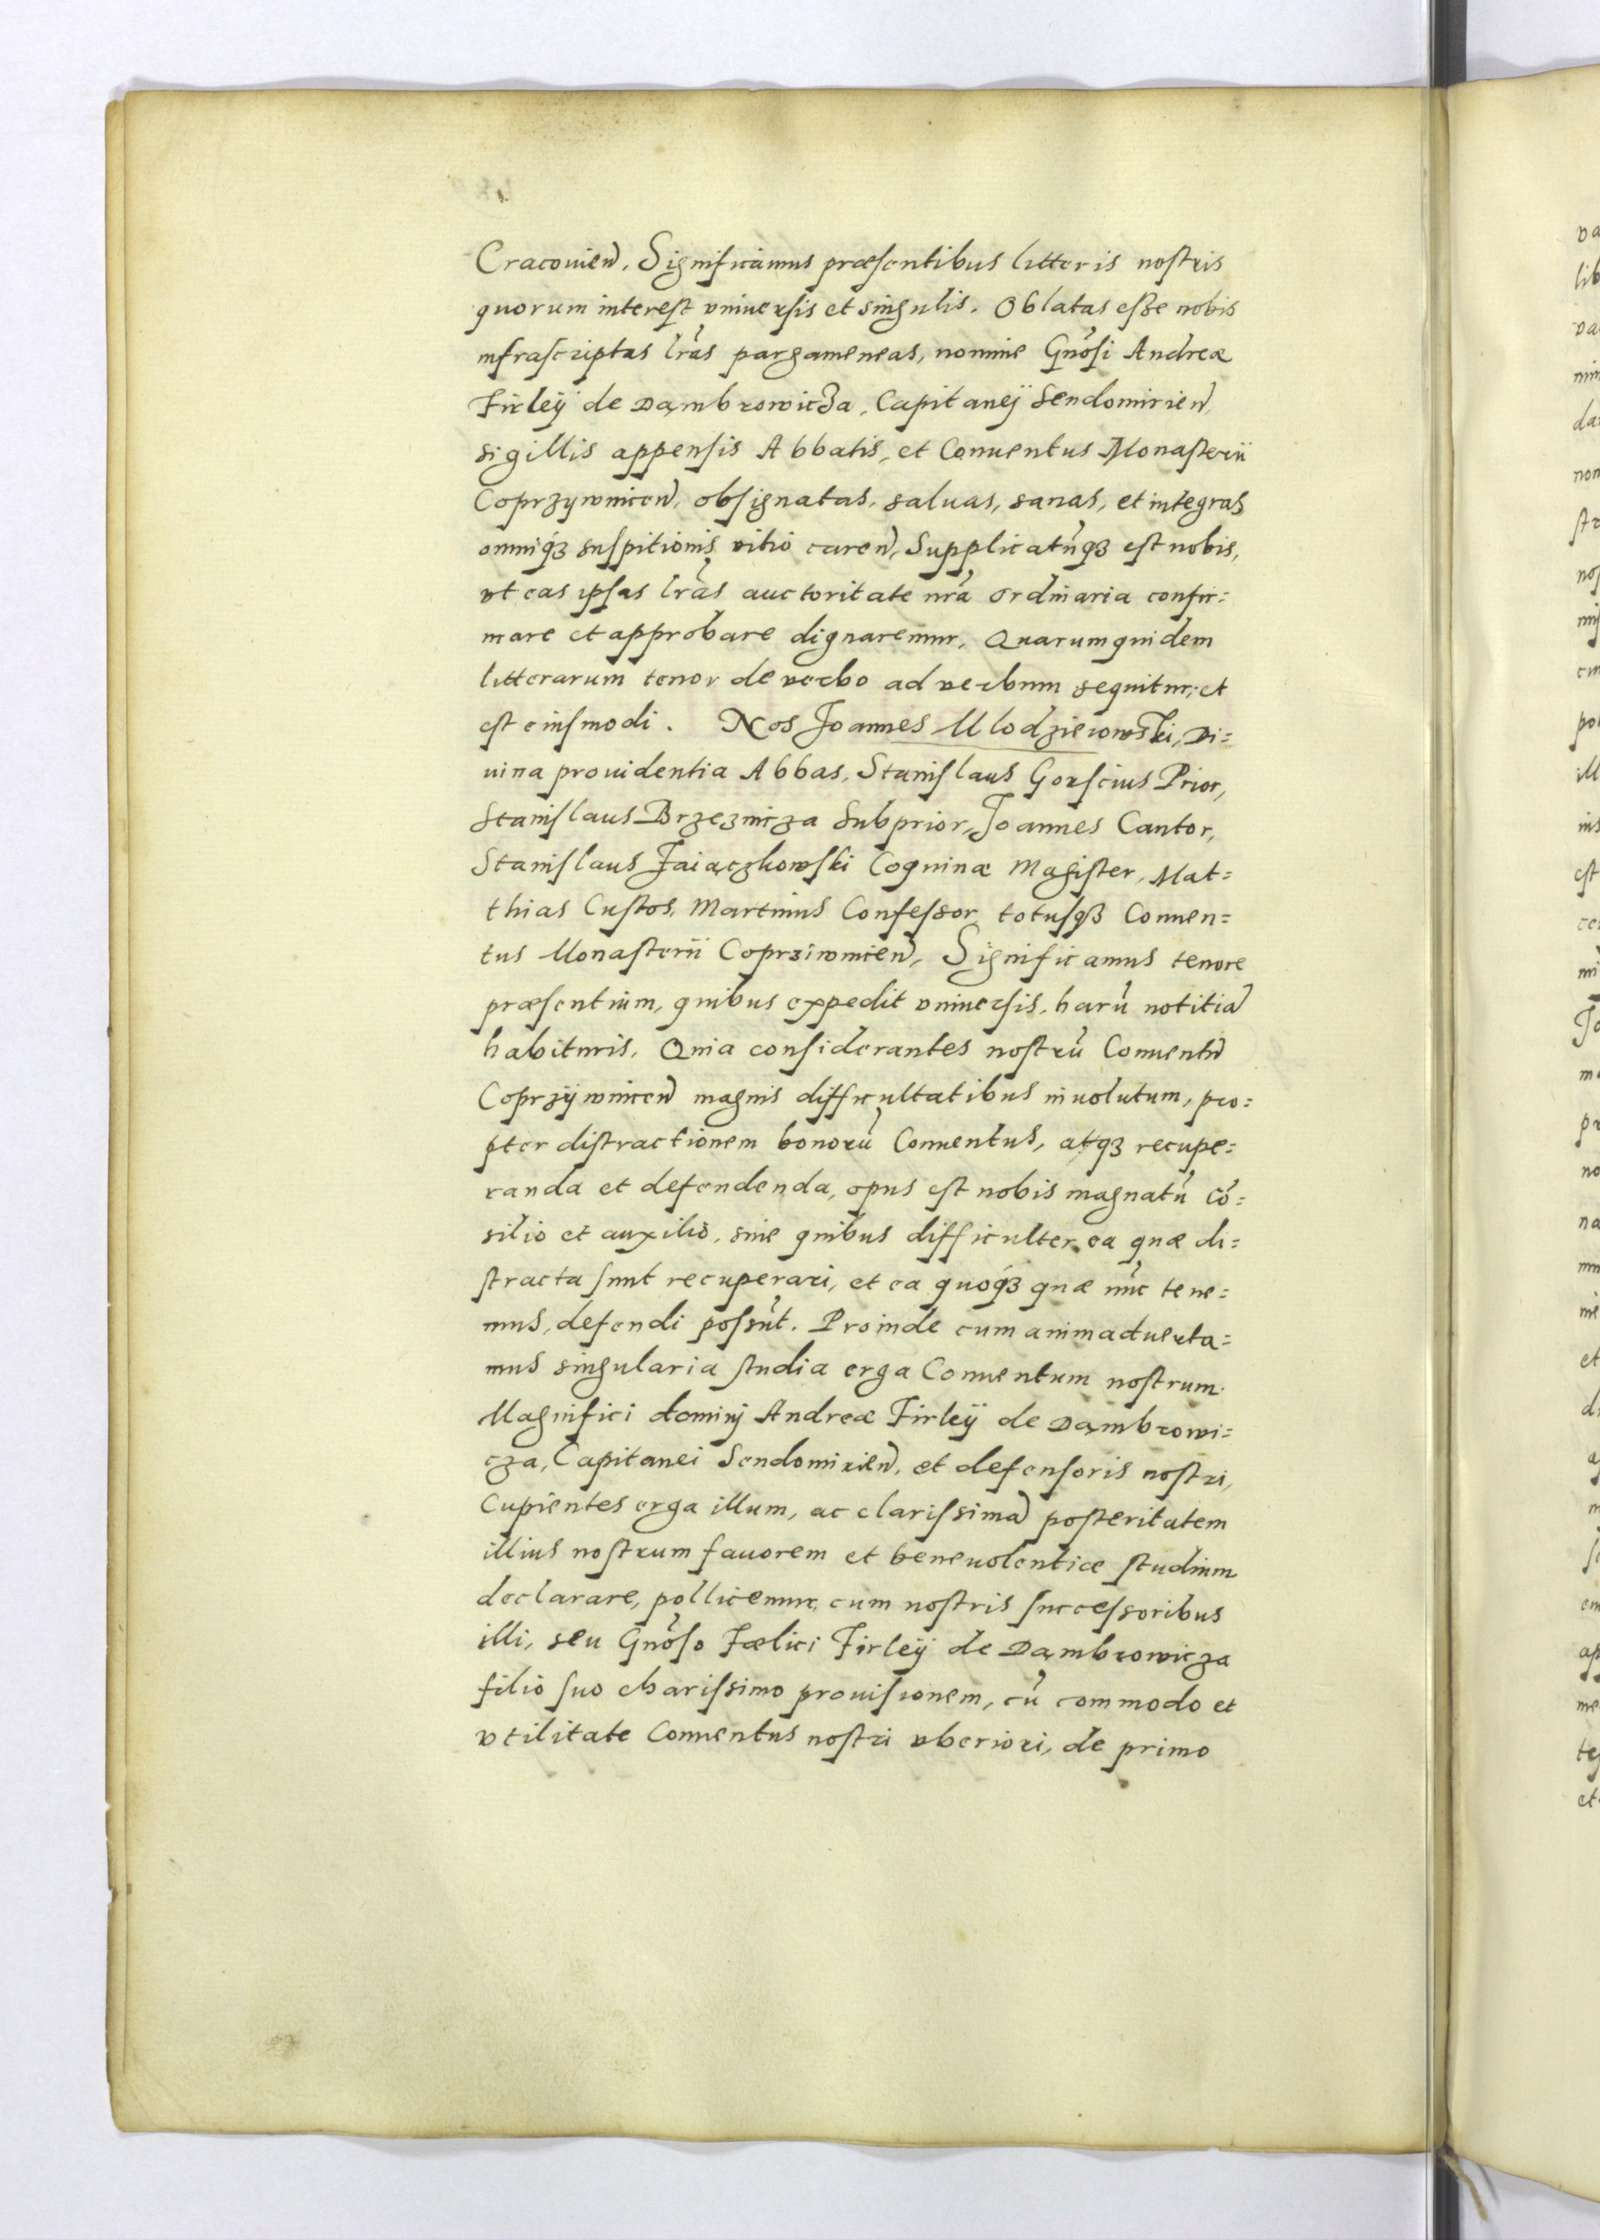 Cracovien̄. Significamus præsentibus litteris nostris
quorum interest vniuersis et singulis. Oblatas esse nobis
infrascriptas lr̄as pargameneas, nomine Gn̄osi Andreæ
Firleÿ de Dąmbrowicza, Capitaneÿ Sendomirien̄,
sigillis appensis Abbatis, et Conuentus Monasterii
Coprzywnicen̄, obsignatas, saluas, sanas, et integras,
omniqꝫ suspitionis vitio caren̄, Supplicatūqꝫ est nobis,
vt eas ipsas lr̄as auctoritate nr̄a ordinaria confir=
mare et approbare dignaremur, Quarum quidem
litterarum tenor de verbo ad verbum sequitur, et
est eiusmodi. Nos Joannes Mlodzieiowski, Di=
uina prouidentia Abbas, Stanislaus Gorscius Prior,
Stanislaus Brzeznicza Subprior, Joannes Cantor,
Stanislaus Jaiączkowski Coquinæ Magister, Mat=
thias Custos, Martinus Confessor, totusqꝫ Conuen=
tus Monasterii Coprziwnicen̄, Significamus tenore
præsentium, quibus expedit vniuersis, harū notitiā
habituris, Quia considerantes nostrū Conuentū
Coprzÿwnicen̄ magnis difficultatibus inuolutum, pro=
pter distractionem bonorū Conuentus, atqꝫ recupe=
randa et defendenda, opus est nobis magnatū cō=
silio et auxilio, sine quibus difficulter ea quæ di=
stracta sunt recuperari, et ea quoqꝫ quæ nūc tene=
mus, defendi possūt. Proinde cum animaduerta=
mus singularia studia erga Conuentum nostrum
Magnifici dominj Andreæ Firleÿ de Dąmbrowi=
cza, Capitanei Sendomirien̄, et defensoris nostri,
Cupientes erga illum, ac clarissimā posteritatem
illius nostrum fauorem et beneuolentiæ studium
declarare, pollicemur, cum nostris successoribus
illi, seu Gn̄oso Fœlici Firleÿ de Dąmbrowicza
filio suo charissimo prouisionem, cū commodo et
vtilitate Conuentus nostri vberiori, de primo